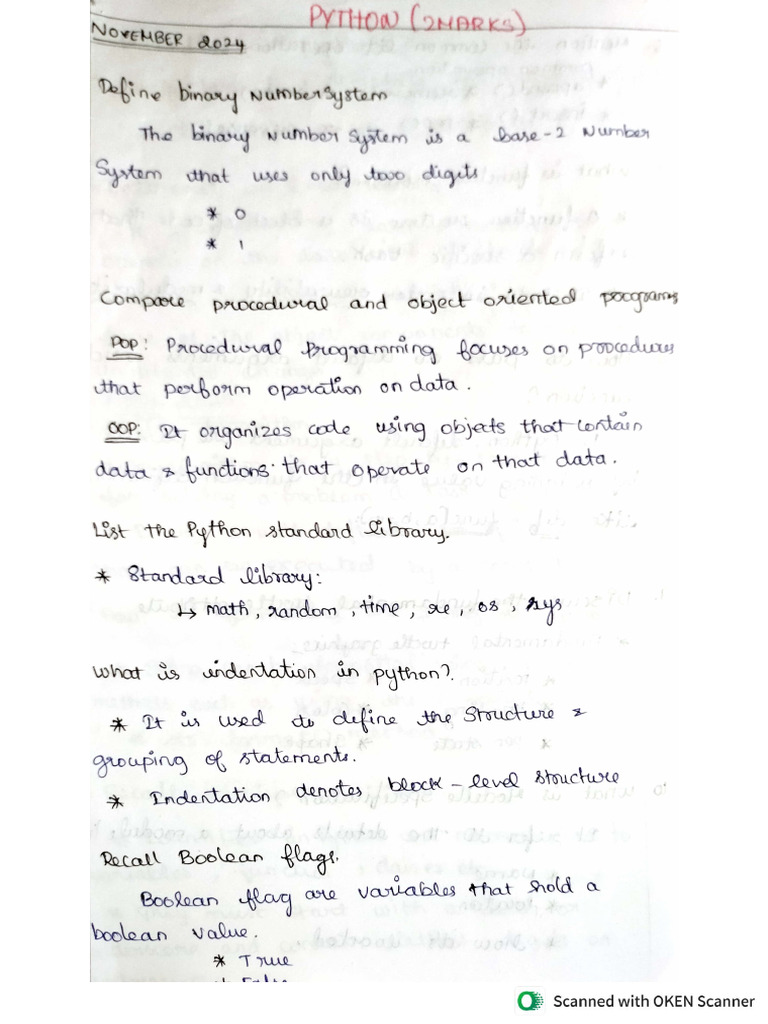 PYTHON (2MARKS)
NOVEMBER 2024
Define binary Number System
The binary Number System is a base-2 Number
System that uses only two digits
* 0
* 1
Compare procedural and object oriented programs
POP: Procedural Programming focuses on procedures
that perform operation on data.
OOP: It organizes code using objects that contain
data & functions that operate on that data.
List the Python standard library.
* Standard library:
↳ math, random, time, re, os, sys
What is indentation in python?
* It is used to define the Structure &
grouping of statements.
* Indentation denotes block-level structure
Recall Boolean flags.
Boolean flag are variables that hold a
boolean value.
* True
Scanned with OKEN Scanner